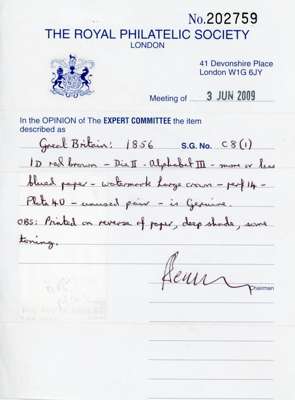 No.202759
THE ROYAL PHILATELIC SOCIETY
LONDON
41 Devonshire Place
London W1G 6JY
Meeting of 3 JUN 2009
In the OPINION of The EXPERT COMMITTEE the item
described as
Great Britain: 1856 S.G. No. C8(1)
1D red brown - Die II - Alphabet III - more or less
blued paper - watermark large crown - perf 14 -
Plate 40 - unused pair - is Genuine.
OBS: Printed on reverse of paper, deep shade, some
toning.
Chairman